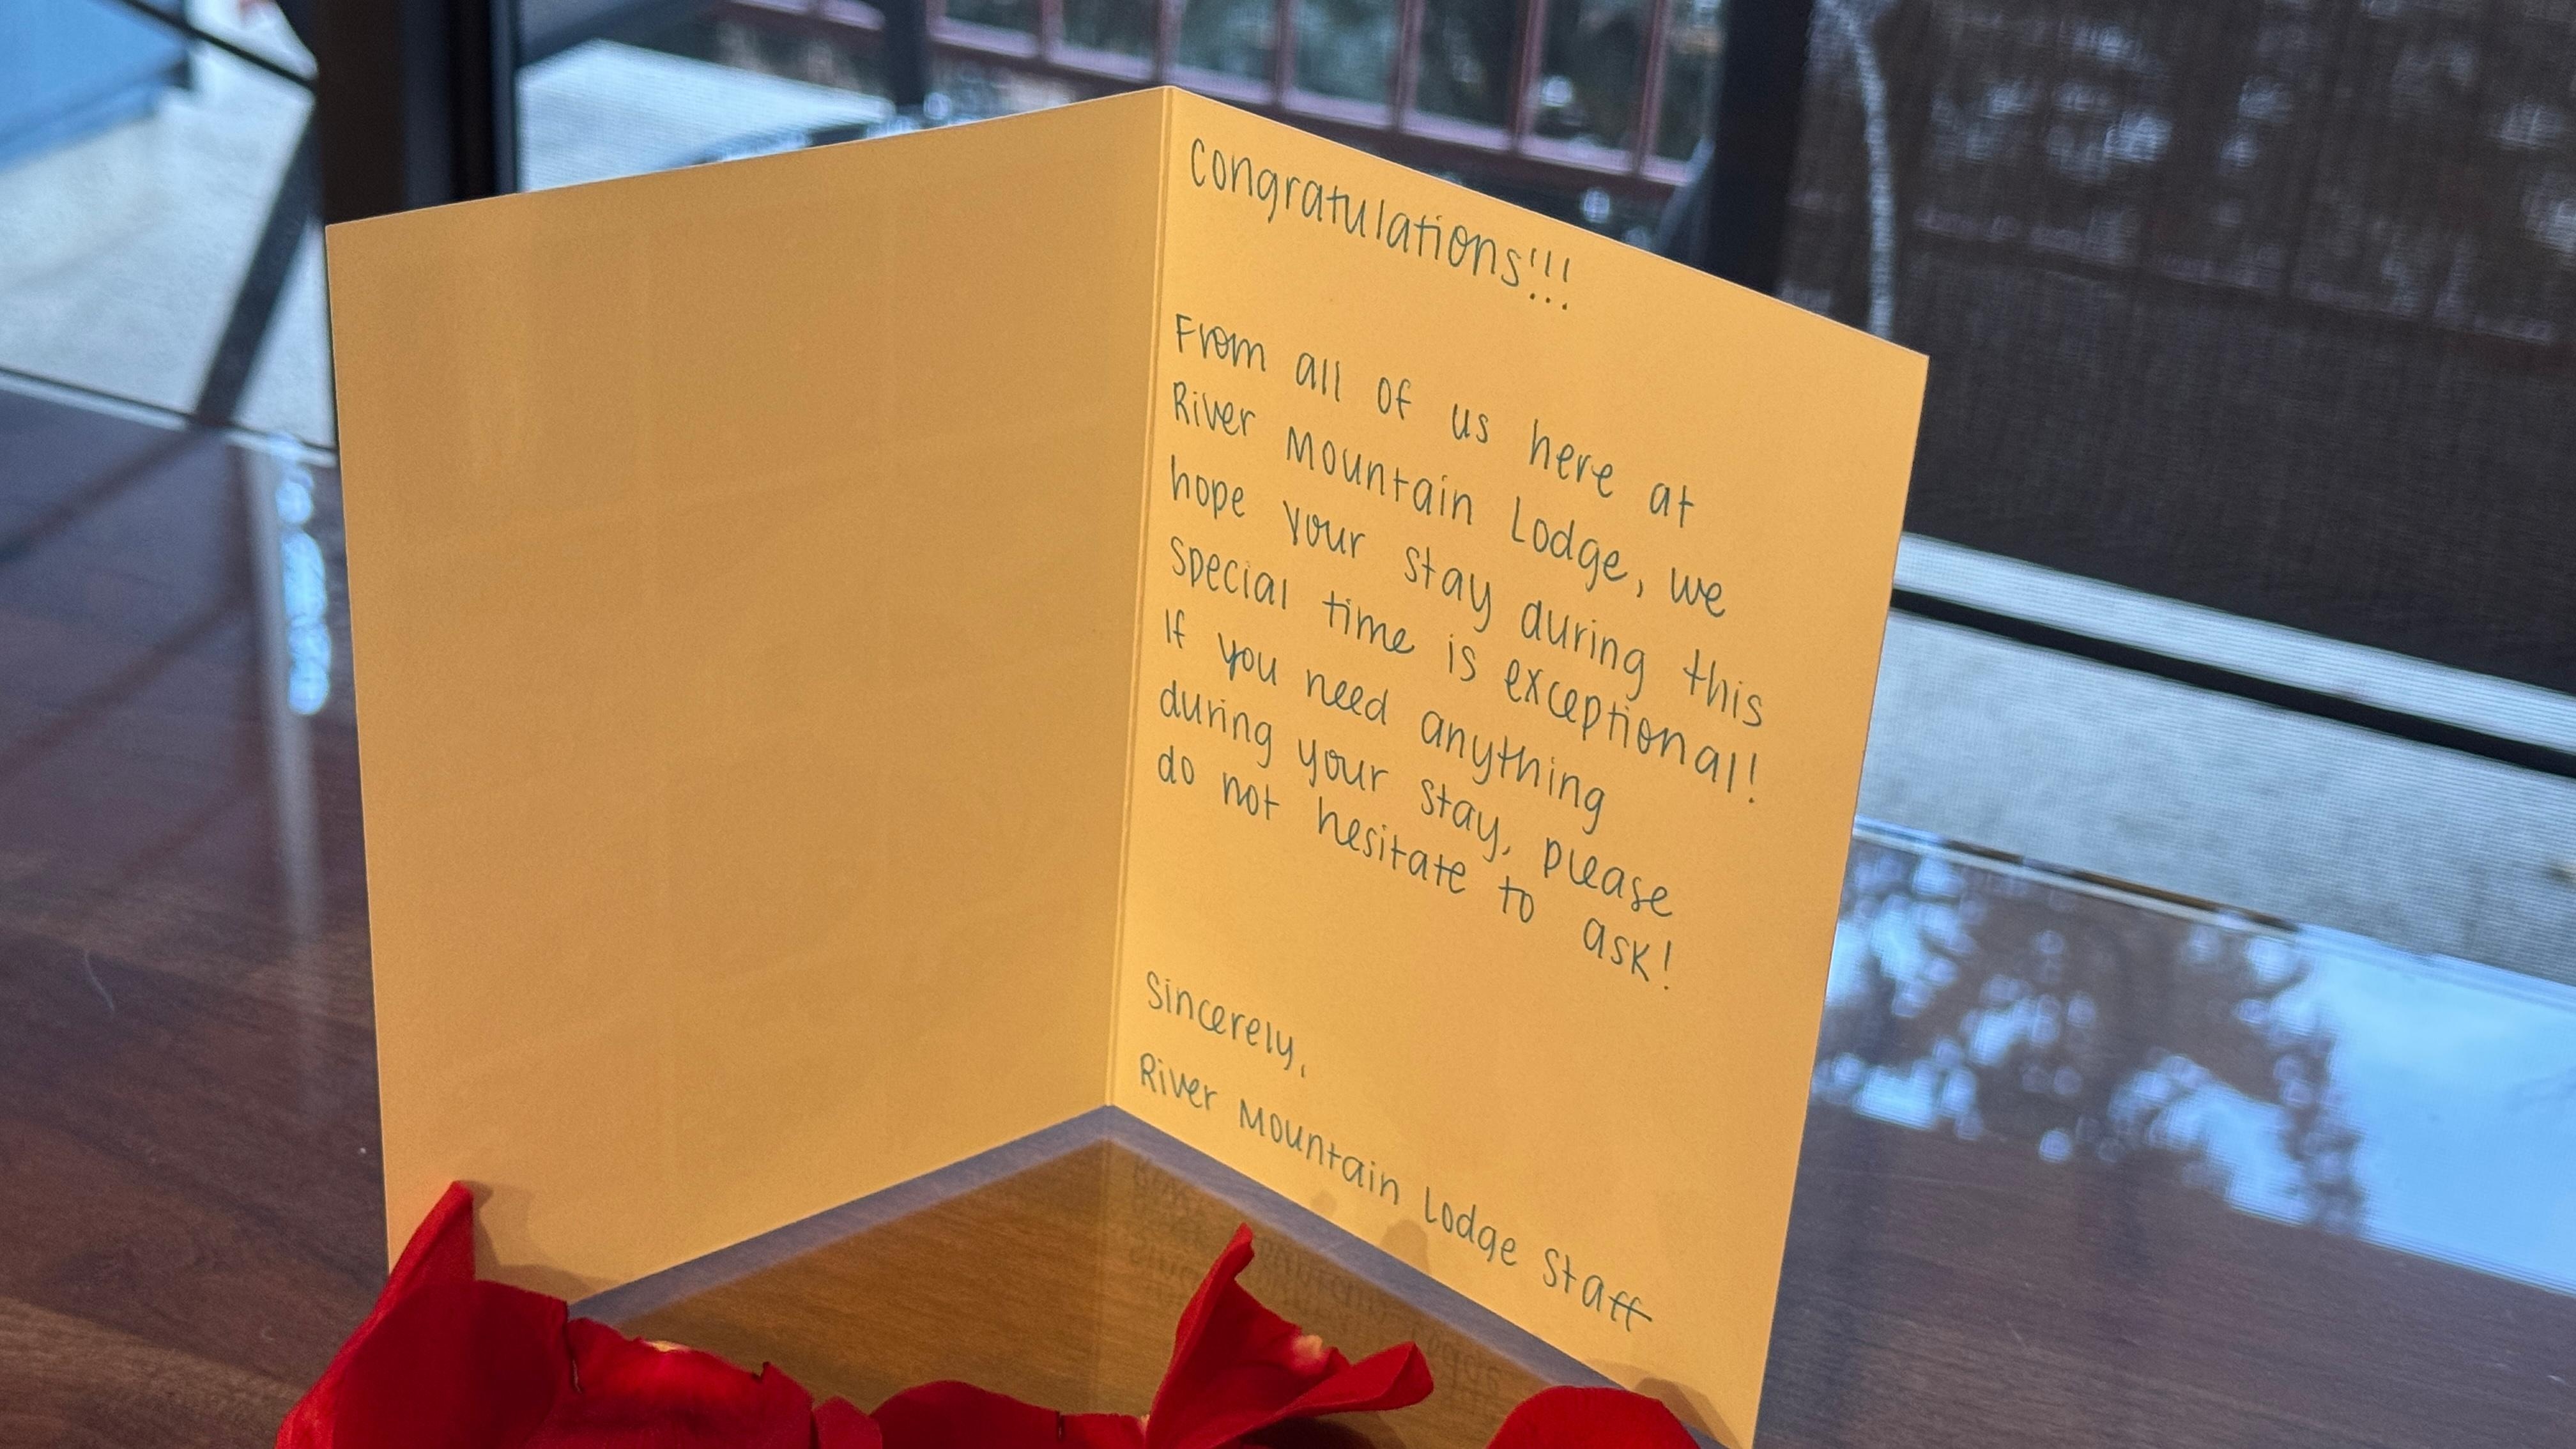 Congratulations!!!
From all of us here at
River Mountain Lodge, we
hope your stay during this
special time is exceptional!
If you need anything
during your stay, please
do not hesitate to ask!
Sincerely,
River Mountain Lodge Staff